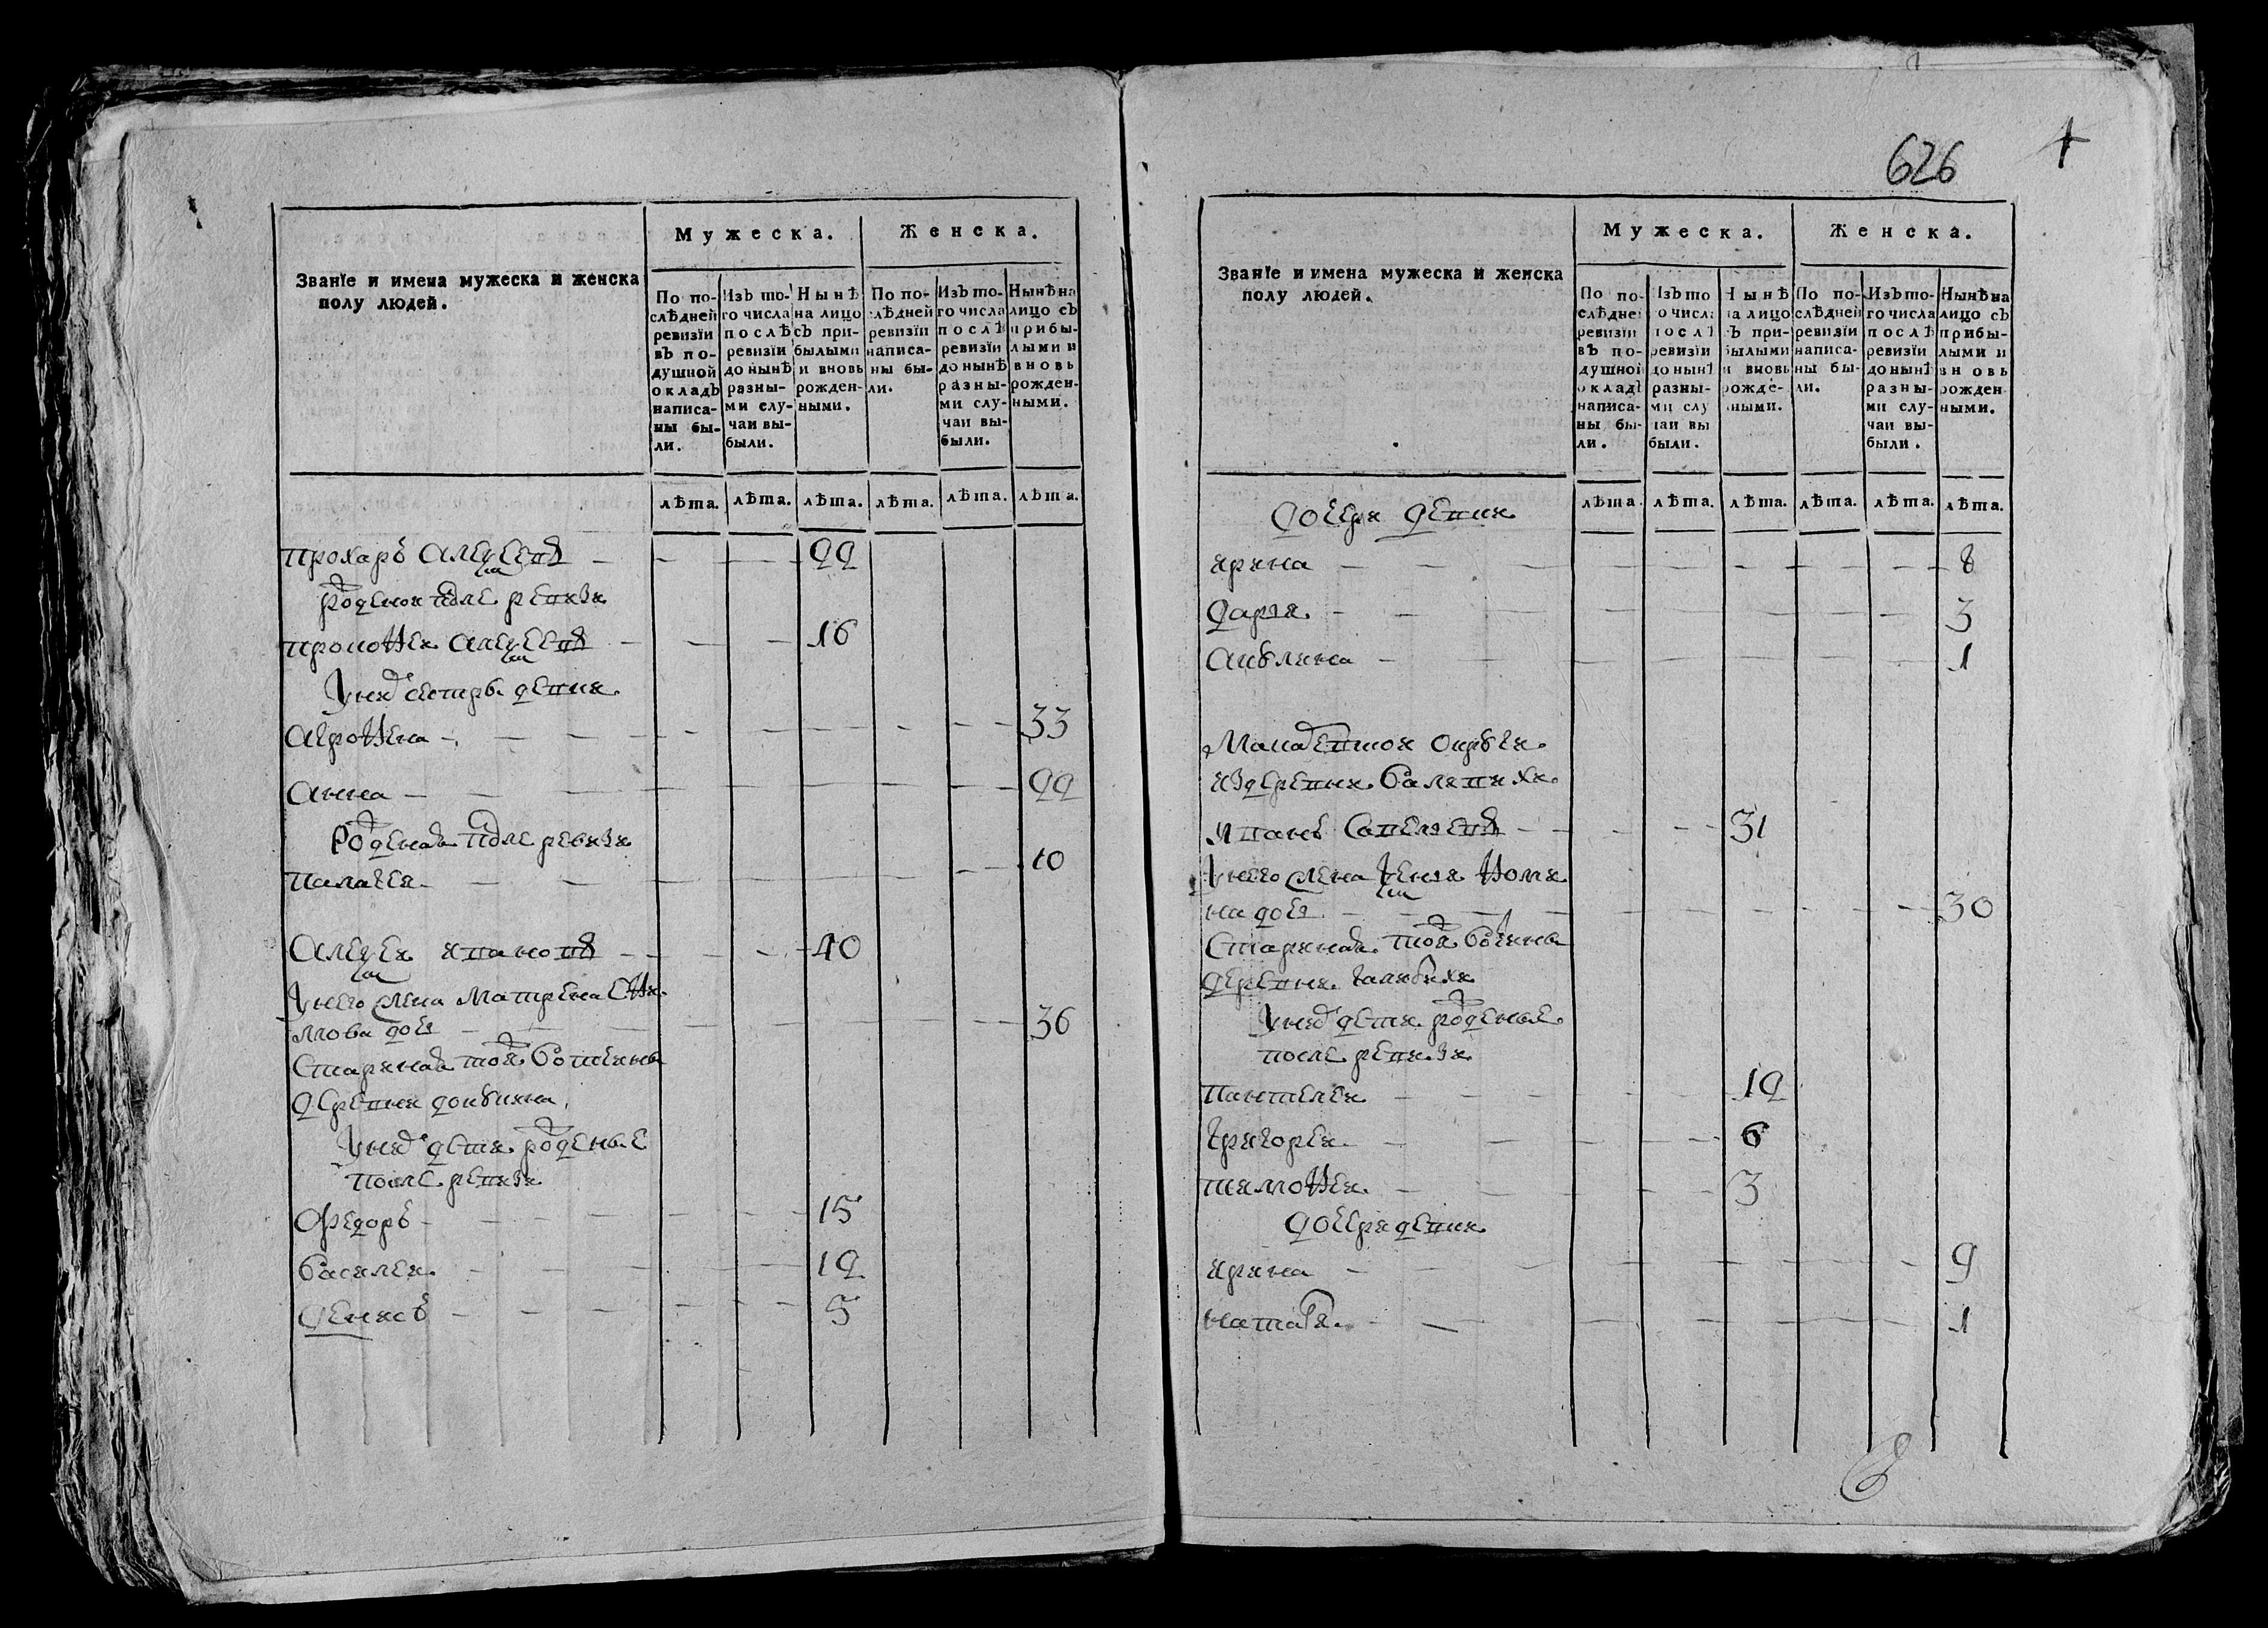 Званїе и имена мужеска и женска
полу людей.
Мужеска.
Женска.
По по-
слѣдней
ревизїи
въ по-
душной
окладъ
написа-
ны бы-
ли.
Изъ то-
го числа
послѣ
ревизїи
до нынѣ
разны-
ми слу-
чаи вы-
были.
Нынѣ
на лицо
съ при-
былыми
и вновь
рожден-
ными.
По по-
слѣдней
ревизїи
написа-
ны бы-
ли.
Изъ то-
го числа
послѣ
ревизїи
до нынѣ
разны-
ми слу-
чаи вы-
были.
Нынѣ на
лицо съ
прибы-
лыми и
вновь
рожден-
ными.
лѣта. лѣта. лѣта. лѣта. лѣта. лѣта.
прохаръ алексеевъ 22
роденои после ревизи
прокофеи алексеевъ 16
у них сестры девки
афрофена 33
анна 22
роденая после ревизи
палагея 10
алексеи ивановъ 40
у него жена матрена ефи
мова дочь 36
стариная тои вотчины
деревни
у них дети роденые
после ревизи
федоръ 15
василеи 12
денисъ 5
626
Званїе и имена мужеска и женска
полу людей.
Мужеска.
Женска.
По по-
слѣдней
ревизїи
въ по-
душной
окладѣ
написа-
ны бы-
ли.
Изъ то
го числа
послѣ
ревизїи
до нынѣ
разны-
ми слу
чаи вы
были.
Нынѣ
на лицо
съ при-
былыми
и вновь
рожде-
ными.
По по-
слѣдней
ревизїи
написа-
ны бы-
ли.
Изъ то-
го числа
послѣ
ревизїи
до нынѣ
разны-
ми слу-
чаи вы-
были.
Нынѣ на
лицо съ
прибы-
лыми и
вновь
рожден
ными.
лѣта. лѣта. лѣта. лѣта. лѣта. лѣта.
дочери девки
ирина 8
дарья 3
акулина 1
из деревни
иванъ савельевъ 31
у него жена ксенья
на дочь 30
стариная тои вотчины
деревни
у них дети роденые
после ревизи
пантелеи 12
григореи 6
тимофеи 3
дочери девки
ирина 9
наталя 1